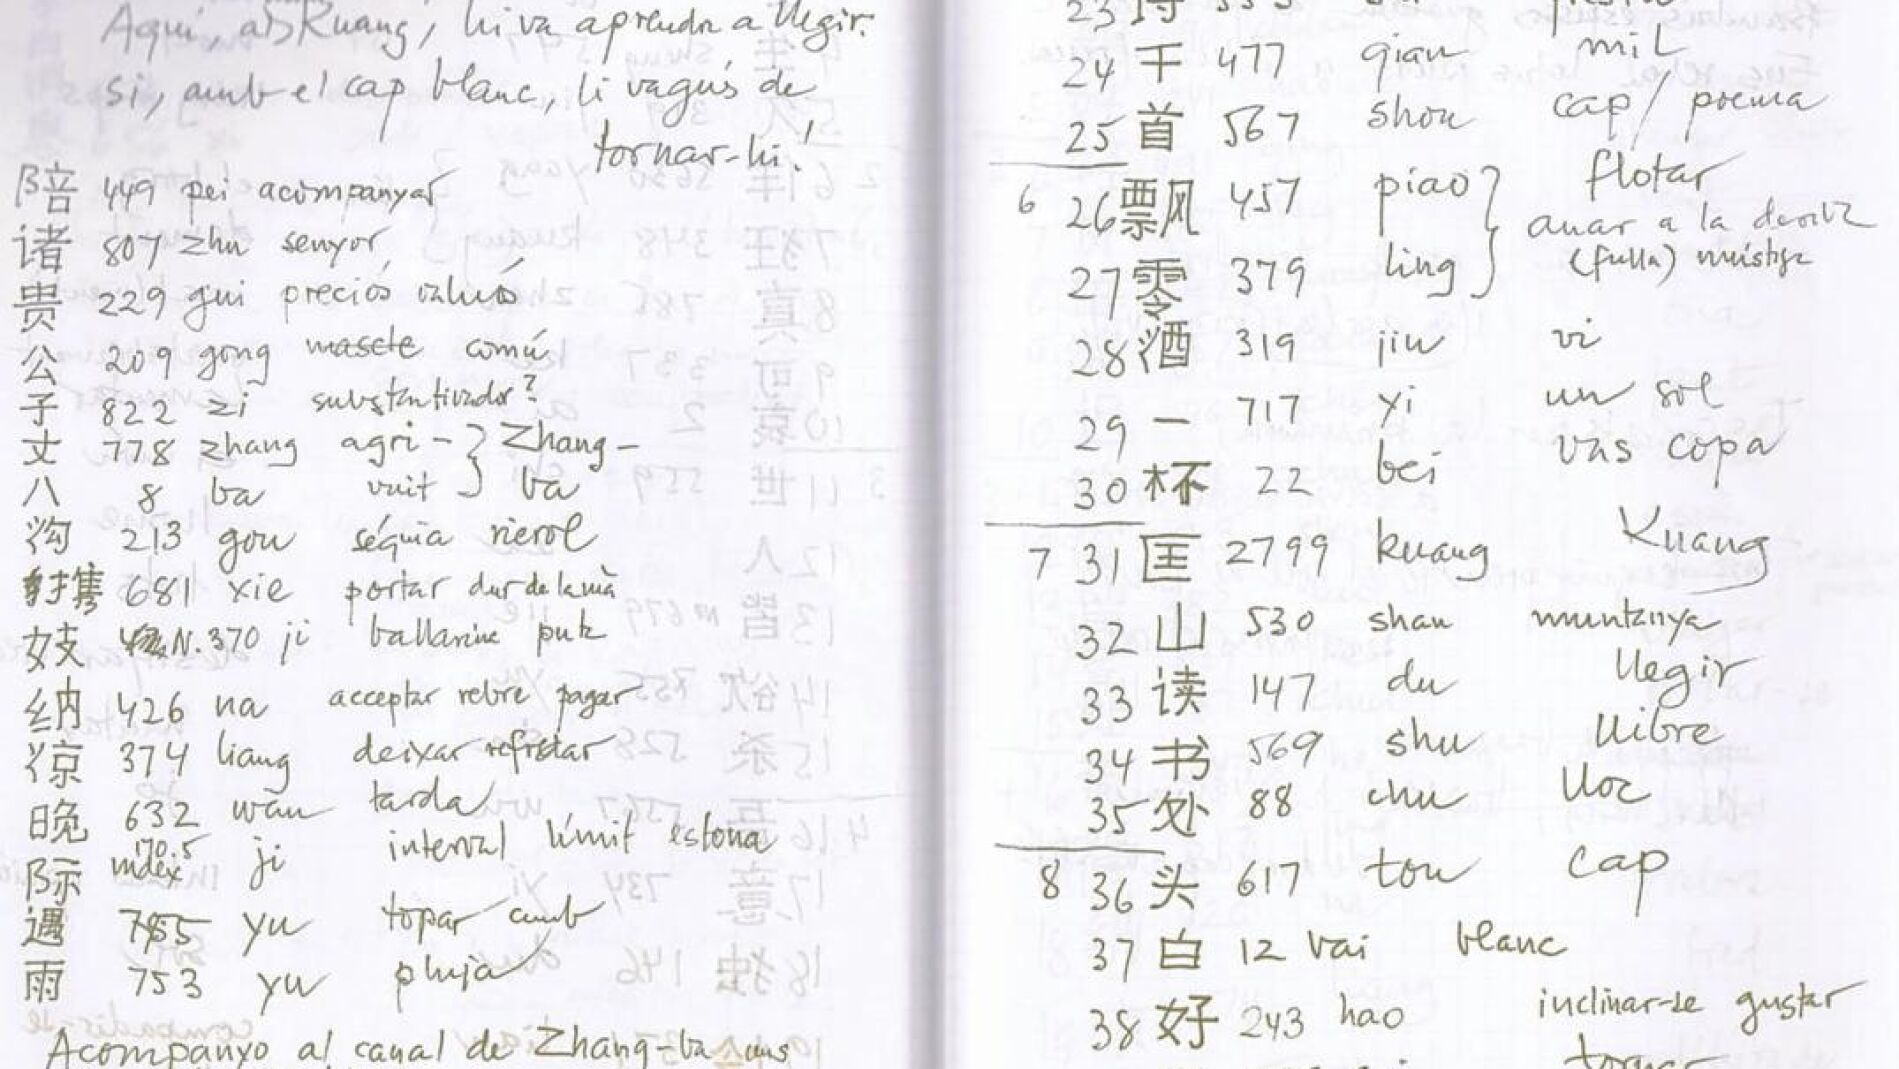 Aquí, a Kuang, hi va aprendre a llegir.
si, amb el cap blanc, li vagús de
tornar-hi!
陪 449 pei acompanyar
诸 807 zhu senyor
贵 229 gui preciós valuós
公 209 gong mascle comú
子 822 zi substantivador?
丈 778 zhang agri- } Zhang-
八 8 ba vuit } ba
沟 213 gou séquia rierol
携 681 xie portar dur de la mà
妓 N. 370 ji ballarina puta
纳 426 na acceptar rebre pagar
凉 374 liang deixar refredar
晚 632 wan tarda
际 index 170.5 ji interval límit estona
遇 755 yu topar amb
雨 753 yu pluja
Acompanyo al canal de Zhang-ba uns
23
24 千 477 qian mil
25 首 567 shou cap / poema
6 26 飘 457 piao } flotar
anar a la deriva
27 零 379 ling } (fulla) mústiga
28 酒 319 jiu vi
29 一 717 yi un sol
30 杯 22 bei vas copa
7 31 匡 2799 kuang Kuang
32 山 530 shan muntanya
33 读 147 du llegir
34 书 569 shu llibre
35 处 88 chu lloc
8 36 头 617 tou cap
37 白 12 bai blanc
38 好 243 hao inclinar-se gustar
tornar